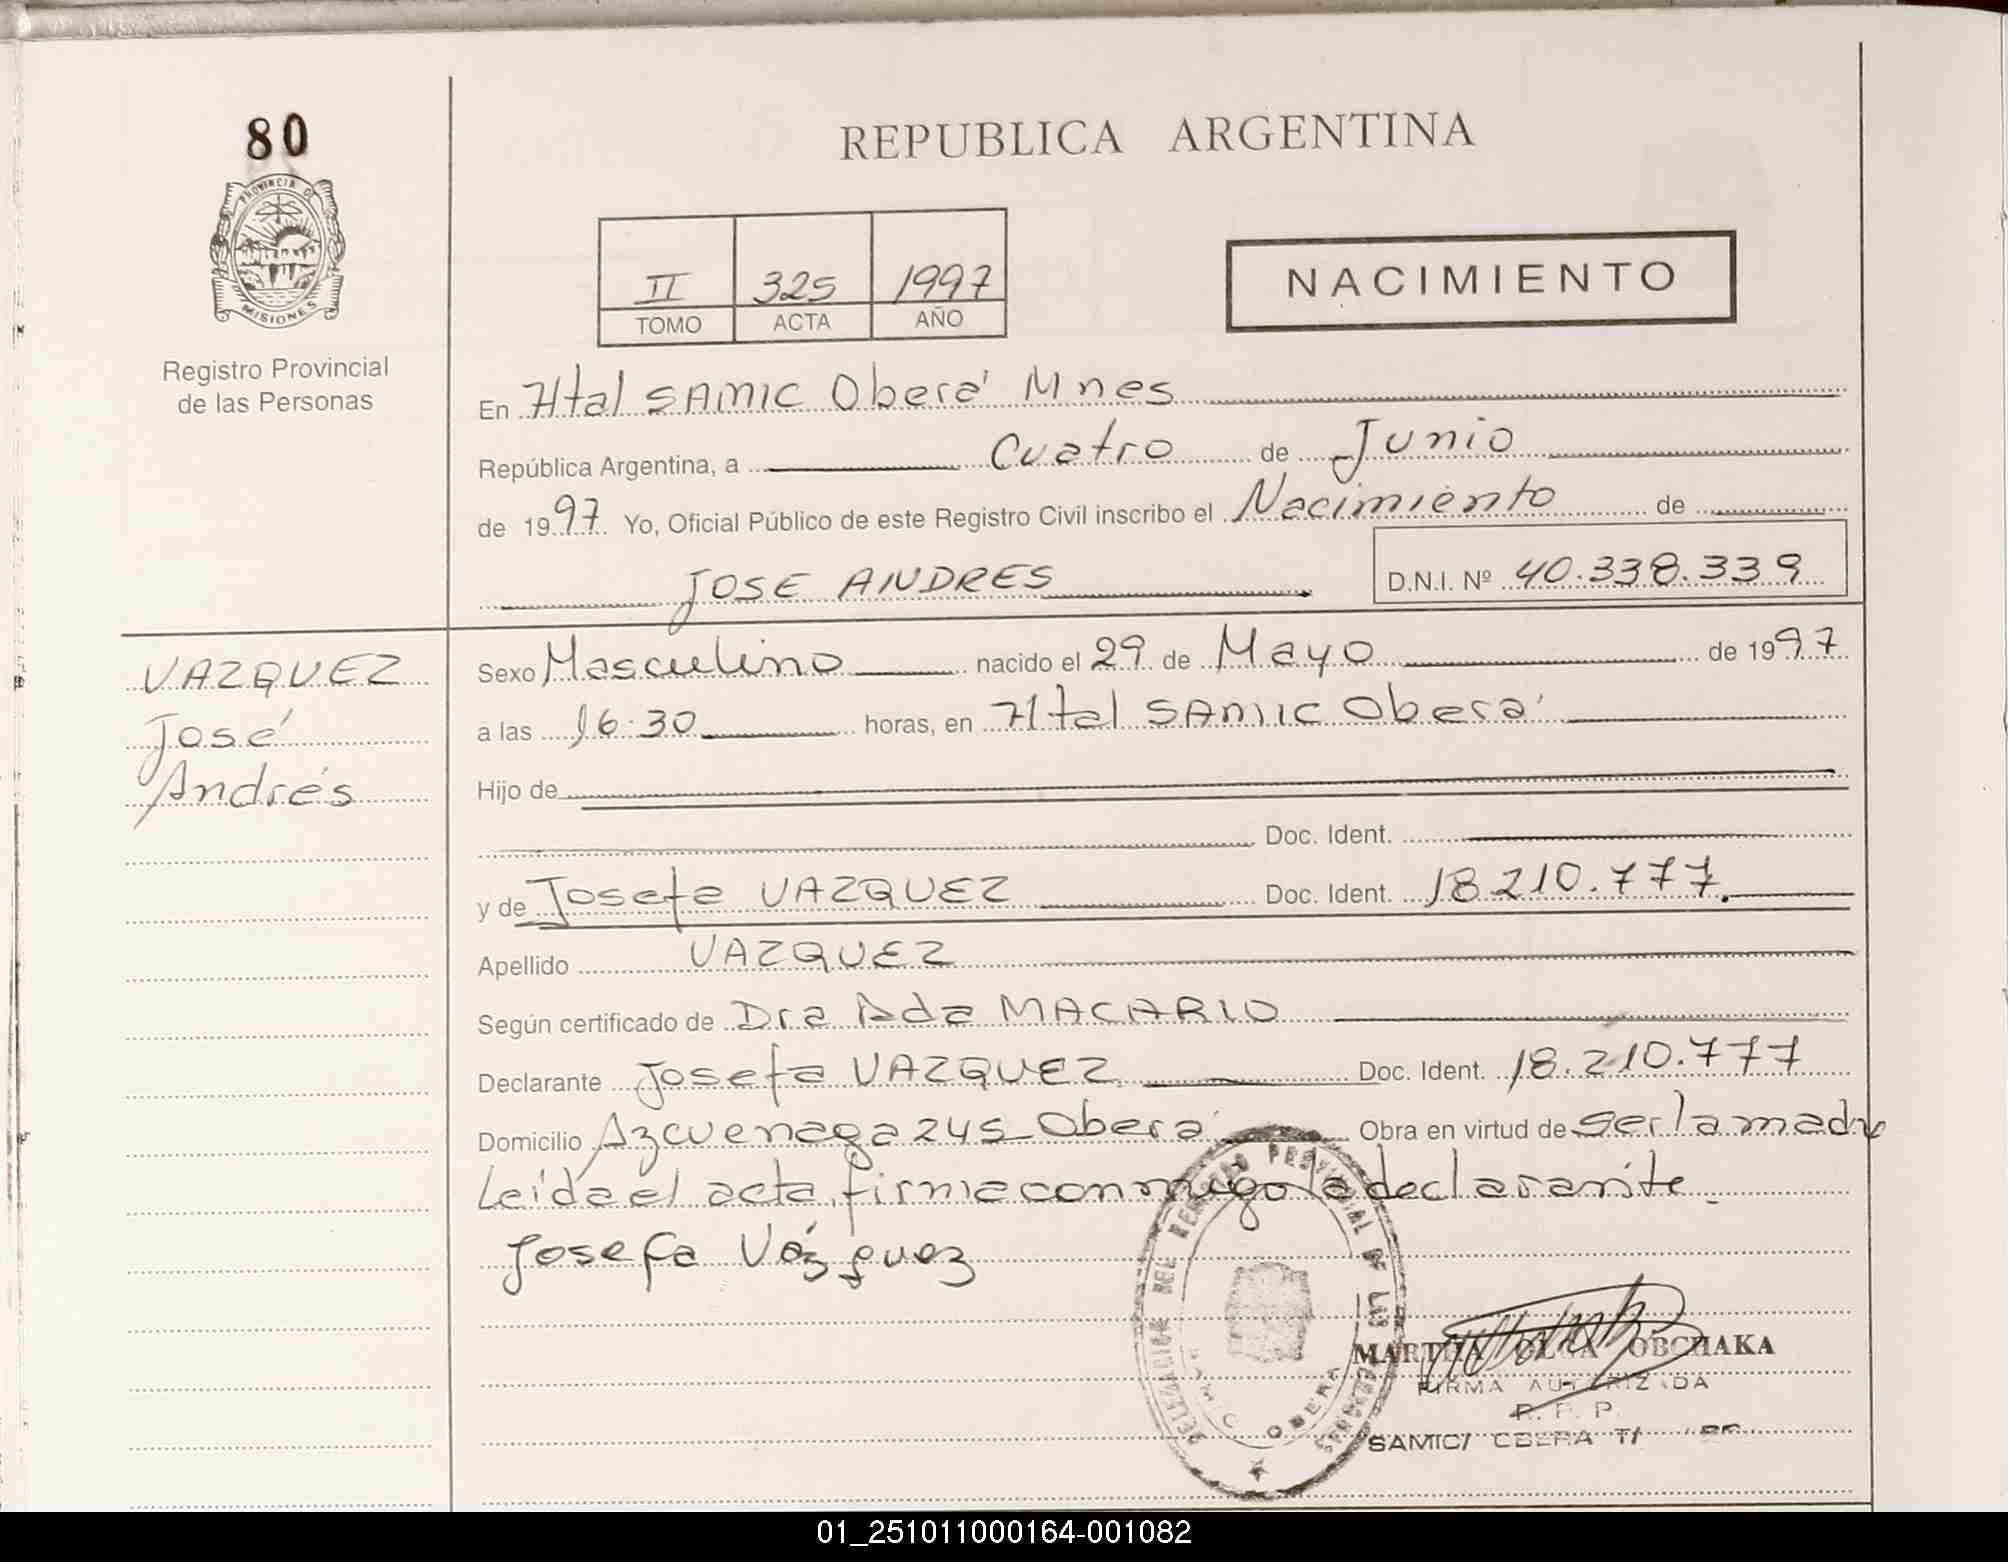 80
PROVINCIA DE
MISIONES
Registro Provincial
de las Personas
REPUBLICA ARGENTINA
II 325 1997
TOMO ACTA AÑO
NACIMIENTO
En Htal SAMIC Oberá Mnes
República Argentina, a Cuatro de Junio
de 1997 Yo, Oficial Público de este Registro Civil inscribo el Nacimiento de
JOSE ANDRES D.N.I. Nº 40.338.339
VAZQUEZ
José
Andrés
Sexo Masculino nacido el 29 de Mayo de 1997
a las 16:30 horas, en Htal SAMIC Oberá
Hijo de
Doc. Ident.
y de Josefa VAZQUEZ Doc. Ident. 18.210.777.
Apellido VAZQUEZ
Según certificado de Dra Ada MACARIO
Declarante Josefa VAZQUEZ Doc. Ident. 18.210.777
Domicilio Azcuenaga 245 Oberá Obra en virtud de ser la madre
Leída el acta, firma conmigo la declarante.
Josefa Vázquez
DELEGACION DEL REGISTRO PROVINCIAL DE LAS PERSONAS
SAMIC OBERA
MARTHA OLGA OBCHAKA
FIRMA AUTORIZADA
R. P. P.
SAMIC/ OBERA
01_251011000164-001082